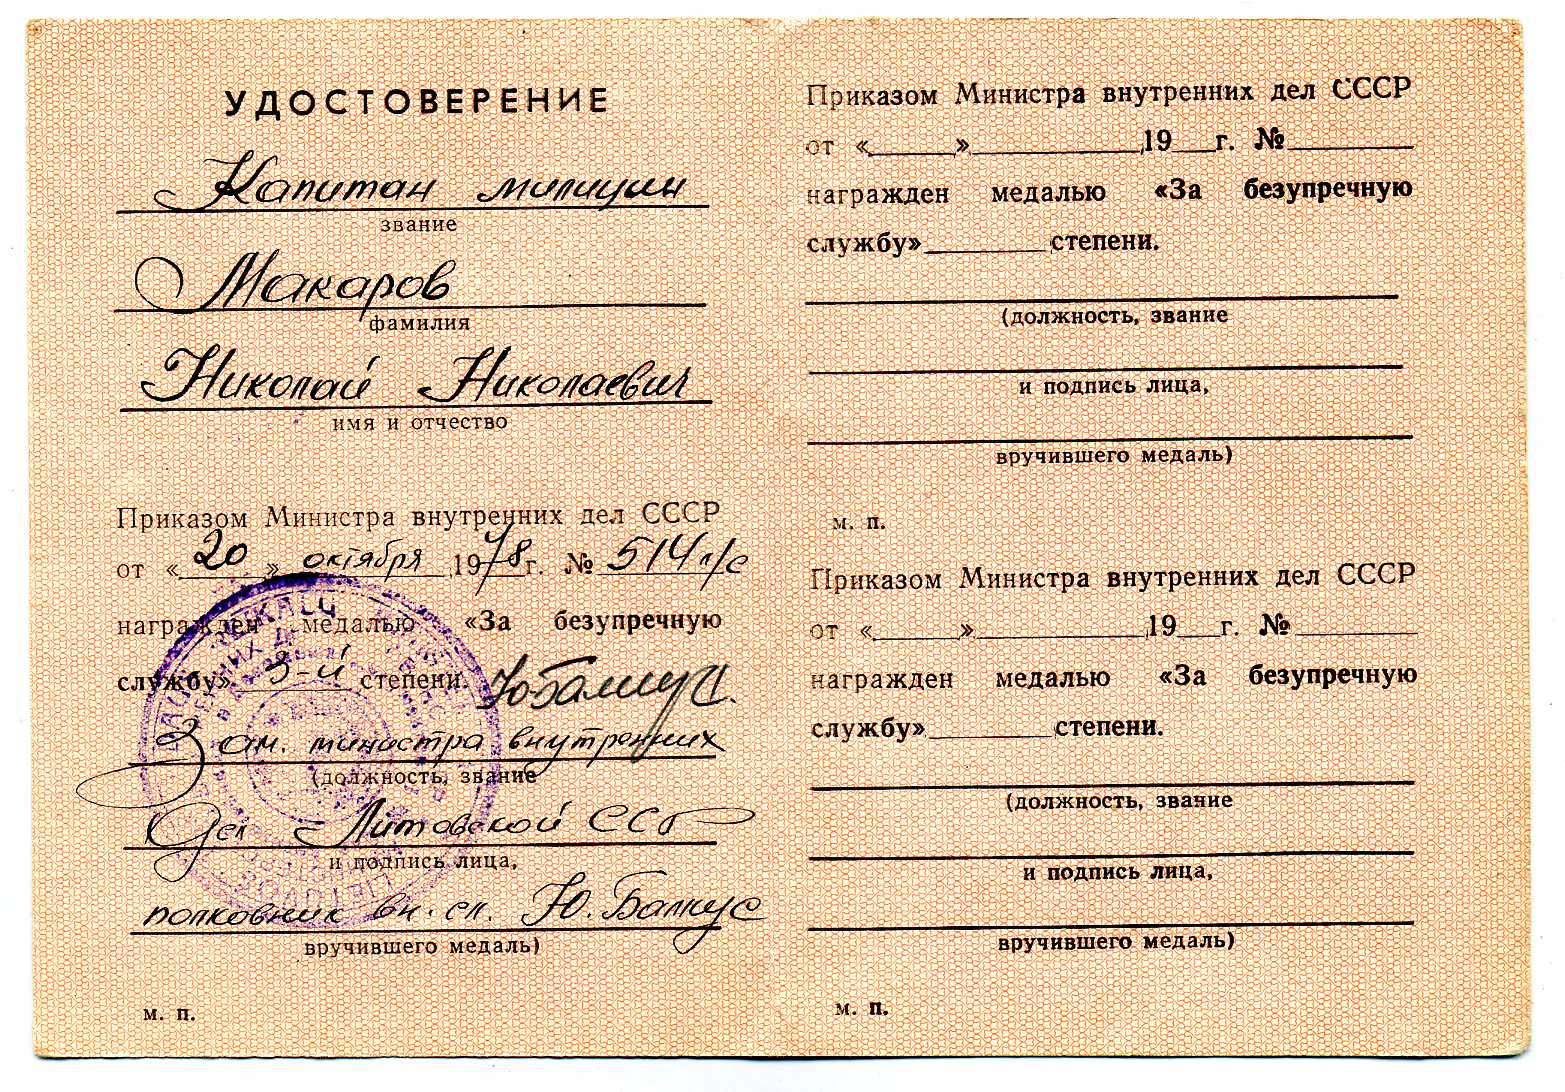 УДОСТОВЕРЕНИЕ
Капитан милиции
звание
Макаров
фамилия
Николай Николаевич
имя и отчество
Приказом Министра внутренних дел СССР
от «20» октября 1978 г. № 514 л/с
награжден медалью «За безупречную
службу» 3-й степени.
Зам. министра внутренних
(должность, звание
дел Литовской ССР
и подпись лица,
полковник вн. сл.
вручившего медаль)
м. п.
Приказом Министра внутренних дел СССР
от «______»____________19___г. №_________
награжден медалью «За безупречную
службу»_________степени.
(должность, звание
и подпись лица,
вручившего медаль)
м. п.
Приказом Министра внутренних дел СССР
от «______»____________19___г. №_________
награжден медалью «За безупречную
службу»_________степени.
(должность, звание
и подпись лица,
вручившего медаль)
м. п.